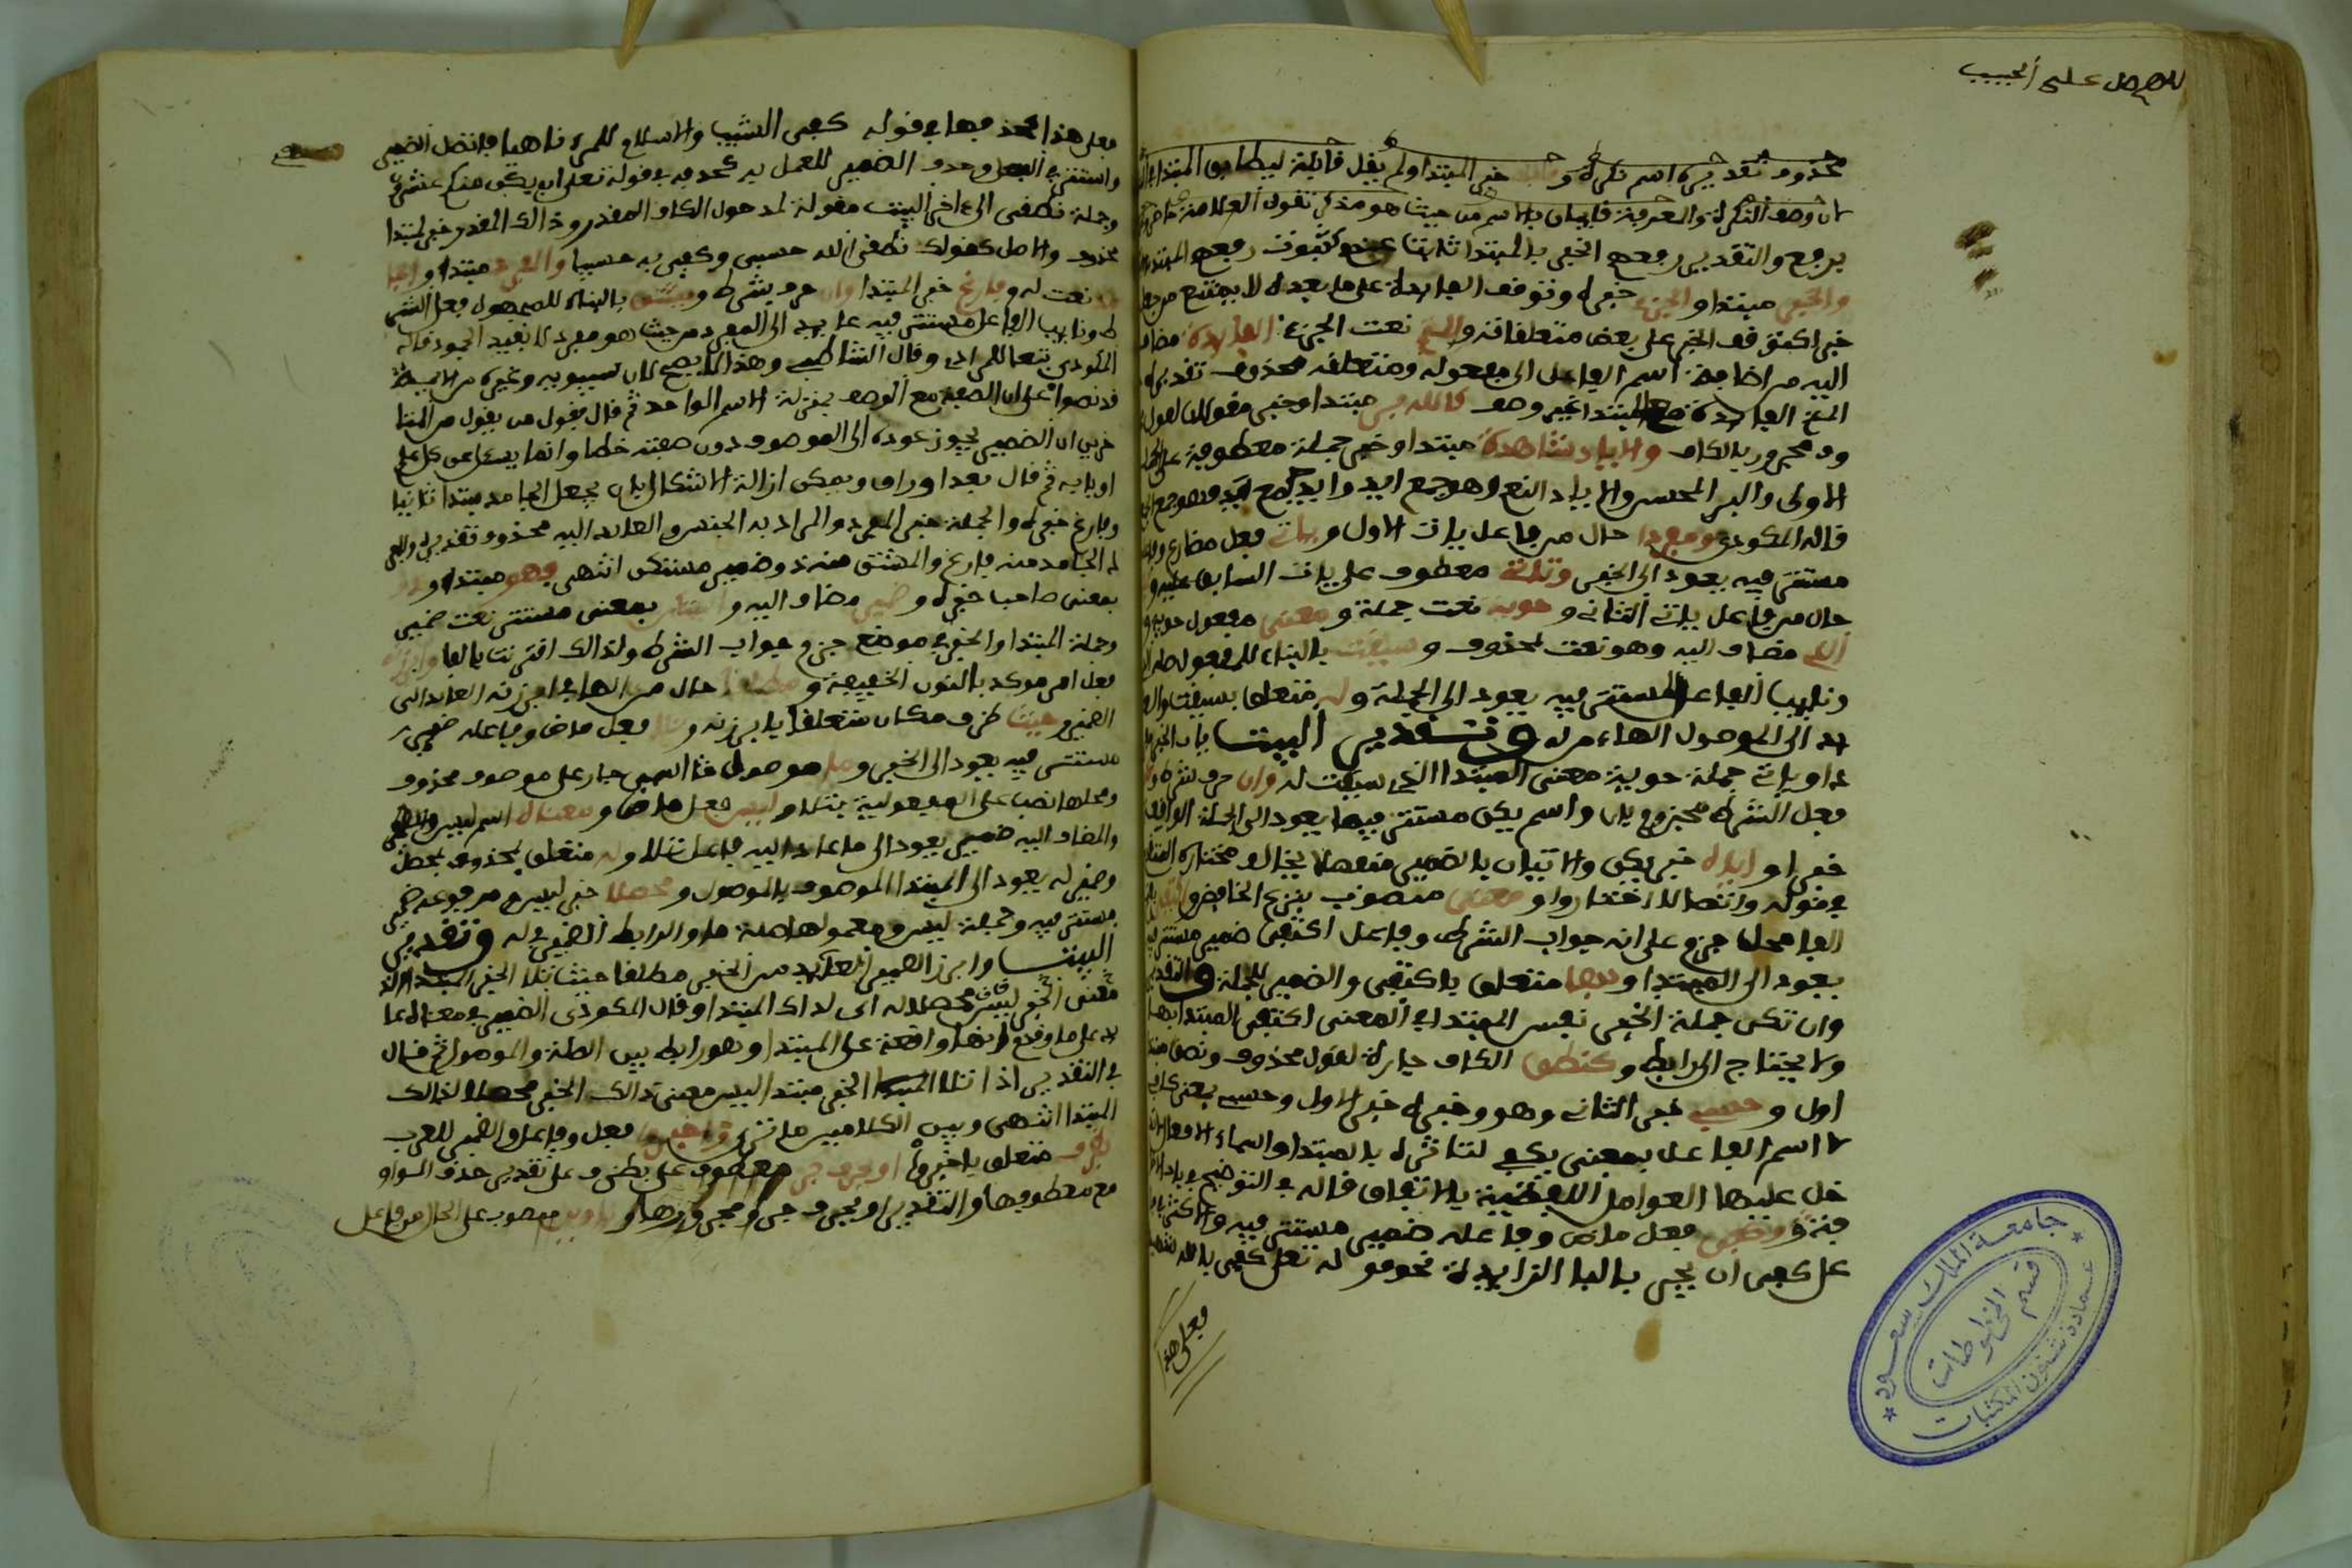 اللهم صل على الحبيب
محذوف تقديره اسم نكرة و خبر المبتدا ولم يقل قابلة ليطابق المبتدا
لان وصف النكرة والمعرفة قابلان بالاسم من حيث هو مذكر تقول العلامة
يرفع والتقدير رفعهم الخبر بالمبتدا ثابتا كثبوت رفعهم المبتدا
والخبر مبتدا والجزء خبره وتوقف الفايدة على ما بعده لا يمنع من جعله
خبرا كتوقف الخبر على بعض متعلقاته والمتم نعت الجزء الفايدة مضاف
اليه من اضافة اسم الفاعل الى مفعوله ومتعلقه محذوف تقديره
المتم الفايدة مع المبتدا غير وصف كالله بر مبتدا وخبر مقولان لقول
وف مجرور بالكاف والاياد شاهدة مبتدا وخبر جملة معطوفة على الجملة
الاولى والبر المحسن والاياد النعم وهو جمع ايد وايد جمع يد فهو جمع الجمع
قاله المكودي ومفردا حال من فاعل يات الاول ويات فعل مضارع وفاعله
مستتر فيه يعود الى الخبر وياتي معطوف على يات السابق عليه و
حال من فاعل ياتي الثاني و حوية نعت جملة و معنى مفعول حوية و
الذي مضاف اليه وهو نعت لمحذوف و سيقت بالبناء للمفعول صلة الذي
ونايب الفاعل المستتر فيه يعود الى الجملة و له متعلق بسيقت والعا
يد الى الموصول الهاء من له وتقدير البيت يات الخبر مفر
دا ويات جملة حوية معنى المبتدا الذي سيقت له وان حرف شرط وتكن
فعل الشرط مجزوم بان واسم يكن مستتر فيها يعود الى الجملة الواقعة
خبرا و اياه خبر يكن والاتيان بالضمير منفصلا يخالف مختاره المتقدم
في قوله واتصالا اختار و معنى منصوب بنزع الخافض و اكتفى
الفا محل جزم على انه جواب الشرط وفاعل اكتفى ضمير مستتر فيه
يعود الى المبتدا و بها متعلق باكتفى والضمير للجملة والتقدير
وان تكن جملة الخبر نفس المبتدا في المعنى اكتفى المبتدا بها
ولا يحتاج الى رابط و كنطقي الكاف جارة لقول محذوف ونطقي مبتدا
اول و حسبي خبر الثاني وهو وخبره خبر الاول وحسب بمعنى كاف
لا اسم الفاعل بمعنى يكفي لتاثره بالمبتدا واسماء الافعال لا تد
خل عليها العوامل اللفظية بالاتفاق قاله في التوضيح في باب الا
ضافة وكفى فعل ماض وفاعله ضمير مستتر فيه والاكثر في فا
عل كفى ان يجر بالبا الزايدة نحو قوله تعلى كفى بالله شهيدا
فعلى هذا
فعلى هذا حذفها في قوله كفى الشيب والاسلام للمرء ناهيا فانفصل الضمير
واستتر في الفعل وحذف الضمير للعمل به كحذفه في قوله تعلى ان يكن منكم عشرون
وجملة نطقي الى اخر البيت مقولة لمدخول الكاف المقدر وذالك المقدر خبر لمبتدا
محذوف والاصل كقولك نطقي الله حسبي وكفى به حسيبا والمفرد مبتدا والجا
مد نعت له و فارغ خبر المبتدا وان حرف شرط ويشتق بالبناء للمجهول فعل الشر
ط ونايب الفاعل مستتر فيه عايد الى المفرد من حيث هو مفرد لا بقيد الجمود قاله
المكودي تبعا للمرادي وقال الشاطبي وهذا لا يصح لان سيبويه وغيره من الايمة
قد نصوا على ان الصفة مع الموصوف بمنزلة الاسم الواحد ثم قال فقول من يقول من المتا
خرين ان الضمير يجوز عوده الى الموصوف دون صفته خطا وانما
اوبابه ثم قال بعد اوراق ويمكن ازالة الاشكال بان يجعل الجامد مبتدا ثانيا
وفارغ خبره والجملة خبر المفرد والمراد به الجنس والعايد اليه محذوف تقديره والمفر
د الجامد منه فارغ والمشتق منه ذو ضمير مستكن انتهى فهو مبتدا و ذو
بمعنى صاحب خبره و ضمير مضاف اليه و مستكن بمعنى مستتر نعت ضمير
وجملة المبتدا والخبر في موضع جزم جواب الشرط ولذالك اقترنت بالفا وابرزنه
فعل امر موكد بالنون الخفيفة و مطلقا حال من الهاء في ابرزنه العايد الى
الضمير و حيث ظرف مكان متعلقا بابرزنه و تلا فعل ماض وفاعله ضمير
مستتر فيه يعود الى الخبر و ما موصول اسمي جار على موصوف محذوف
ومحلها نصب على المفعولية بتلا و ليس فعل ماض و معناه اسم ليس
والمضاف اليه ضمير يعود الى ما عاد اليه فاعل تلا و له متعلق بمحذوف بمحصل
وضمير له يعود الى المبتدا الموصوف بالموصول و محصلا خبر ليس ومرفوعه ضمير
مستتر فيه وجملة ليس ومعمولها صلة ما والرابط الضمير في له وتقدير
البيت وابرز الضمير العايد من الخبر مطلقا حيث تلا الخبر المبتدا الذي
معنى الخبر ليس محصلا له اي لذاك المبتدا وقال المكودي الضمير في معناه عا
يد على ما وقع لانها واقعة على المبتدا وهو رابط بين الصلة والموصول ثم قال
في التقدير اذا تلا الخبر مبتدا ليس معنى ذالك الخبر محصلا لذالك
المبتدا انتهى وبين الكلامين ما ترى واخبروا فعل وفاعل والضمير للعرب
بظرف متعلق باخبروا او بحرف جر معطوف على بظرف وعلى تقدير حذف الواو
مع معطوفها والتقدير او بحرف جر ومجرورها و ناوين منصوب على الحال من فاعل
جامعة الملك سعود
عمادة شئون المكتبات
قسم المخطوطات